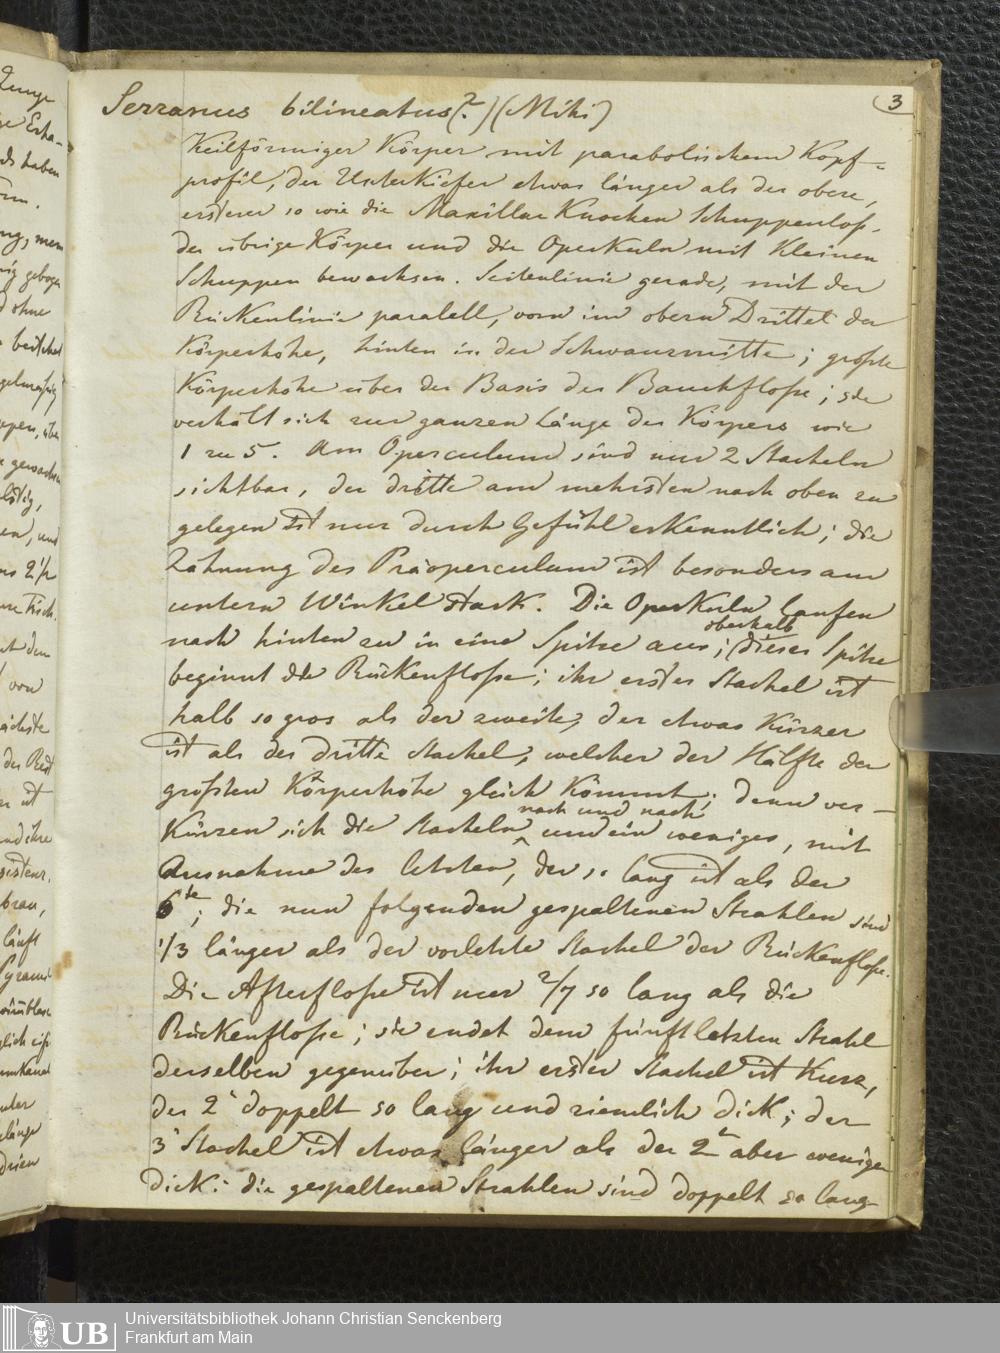 3
Serranus bilineatus(?)(Miki)
Keilförmiger Körper mit parabolischem Kopf=
profil, der Unterkiefer etwas länger als der obere,
ersterer so wie die Maxillar Knochen Schuppenlos,
der übrige Körper und die Operkuln mit Kleinen
Schuppen bewachsen. Seitenlinie gerade, mit der
Rückenlinie paralell, vorn im obern Drittel der
Körperhöhe, hinten in der Schwanzmitte; größte
Körperhöhe über der Basis der Bauchfloße; sie
verhält sich zur ganzen Länge des Körpers wie
1 zu 5. Am Operculum sind nur 2 Stacheln
sichtbar, der dritte am mehrsten nach oben zu
gelegen ist nur durch Gefühl erkenntlich; die
Zähnung des Präoperculum ist besonders am
untern Winkel stark. Die Operkuln laufen
nach hinten zu in eine Spitze aus; oberhalb dieser Spitze
beginnt die Rückenfloße; ihr erster Stachel ist
halb so gros als der zweite, der etwas Kürzer
ist als der dritte Stachel, welcher der Hälfte der
größten Körperhöhe gleich Kömmt; denn ver-
Kürzen sich die Stacheln nach und nach um ein weniges, mit
Ausnahme des letzten, der so lang ist als der
6te; die nun folgenden gespaltenen Strahlen sind
1/3 länger als der vorletzte Stachel der Rückenfloße.
Die Afterfloße ist nur 2/7 so lang als die
Rückenfloße; sie endet dem fünftletzten Strahl
derselben gegenüber; ihr erster Stachel ist Kurz,
der 2t doppelt so lang und ziemlich dick; der
3t Stachel ist etwas länger als der 2te aber weniger
dick: die gespaltenen Strahlen sind doppelt so lang
Zunge
haben
ohne
von
der
ist
und ihre
brau,
läuft
UB
Universitätsbibliothek Johann Christian Senckenberg
Frankfurt am Main